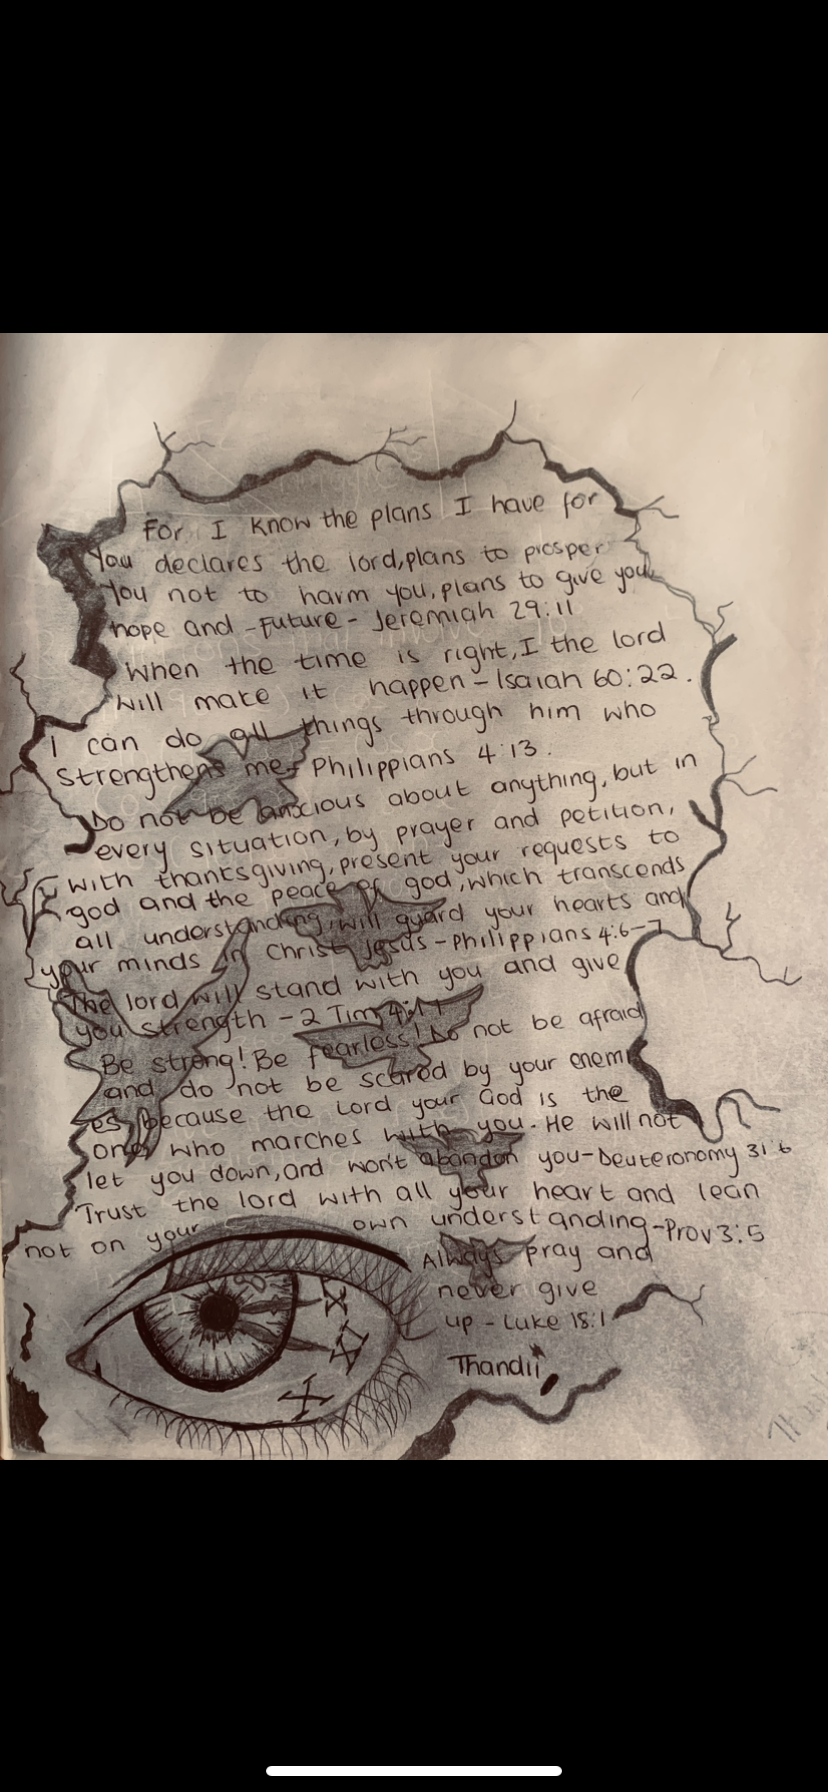 For I know the plans I have for
You declares the lord, plans to prosper
You not to harm you, plans to give you
hope and - Future - Jeremiah 29:11
When the time is right, I the lord
will make it happen - Isaiah 60:22.
I can do all things through him who
Strengthens me - Philippians 4:13.
Do not be anxious about anything, but in
every situation, by prayer and petition,
with thanksgiving, present your requests to
god and the peace of god, which transcends
all understanding, will guard your hearts and
your minds in Christ Jesus - Philippians 4:6-7
The lord will stand with you and give
you strength - 2 Tim 4:17
Be strong! Be fearless! Do not be afraid
and do not be scared by your enemi
es because the Lord your God is the
one who marches with you. He will not
let you down, and won't abandon you - Deuteronomy 31:6
Trust the lord with all your heart and lean
not on your own understanding - Prov 3:5
Always pray and
never give
up - Luke 18:1
Thandii